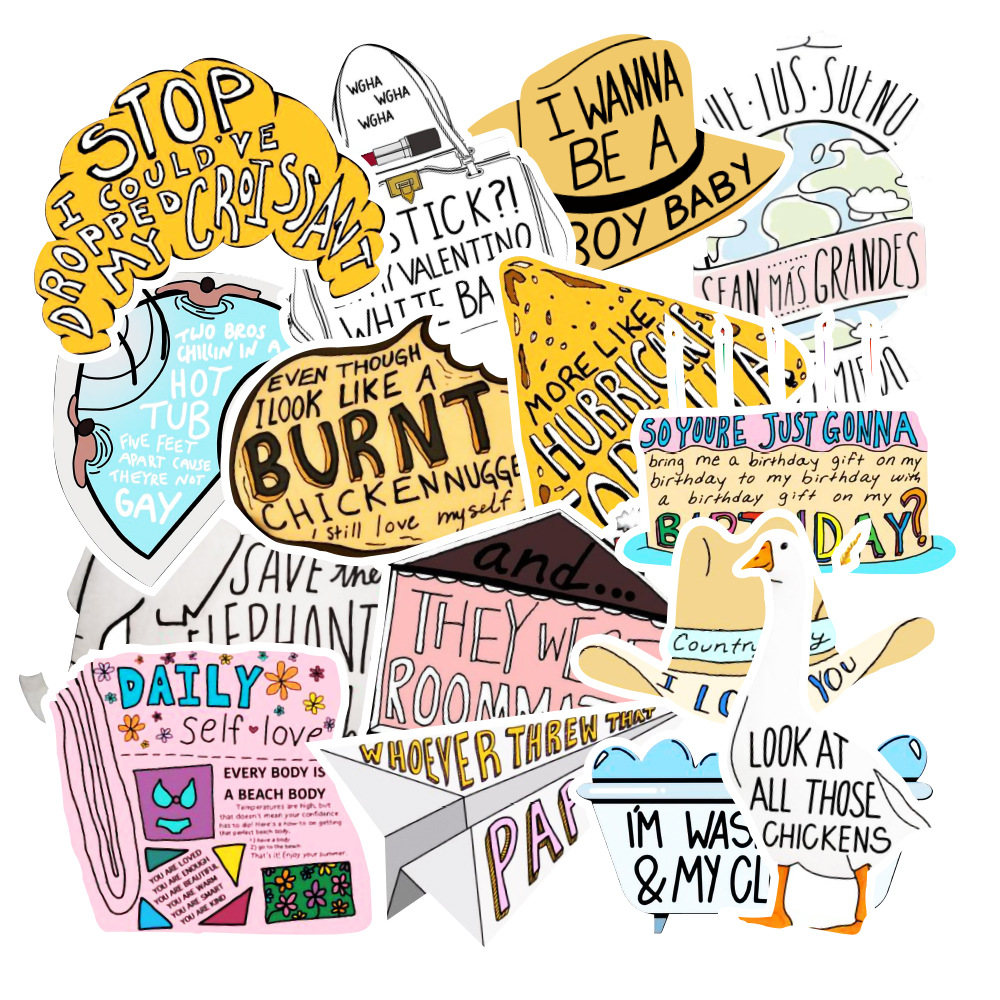 STOP
I COULD'VE
DROPPED
MY CROISSANT
WGHA
WGHA
WGHA
STICK?!
VALENTINO
WHITE BA
I WANNA
BE A
BOY BABY
TUS·SUEÑ
SEAN MÁS GRANDES
TWO BROS
CHILLIN IN A
HOT
TUB
FIVE FEET
APART CAUSE
THEYRE NOT
GAY
EVEN THOUGH
I LOOK LIKE A
BURNT
CHICKEN NUGGE
i still love myself
MORE LIKE
HURRICANE
SO YOURE JUST GONNA
bring me a birthday gift on my
birthday to my birthday with
a birthday gift on my
BIRTHDAY?
SAVE the
ELEPHANT
and...
THEY WE
ROOMMAT
Country
YOU
DAILY
self love
EVERY BODY IS
A BEACH BODY
Temperatures are high, but
that doesn't mean your confidence
has to do! Here's a how-to on getting
that perfect beach body.
1) have a body
2) go to the beach
That's it! Enjoy your summer.
YOU ARE LOVED
YOU ARE ENOUGH
YOU ARE BEAUTIFUL
YOU ARE WARM
YOU ARE SMART
YOU ARE KIND
WHOEVER THREW THAT
PAP
I'M WAS
& MY CL
LOOK AT
ALL THOSE
CHICKENS